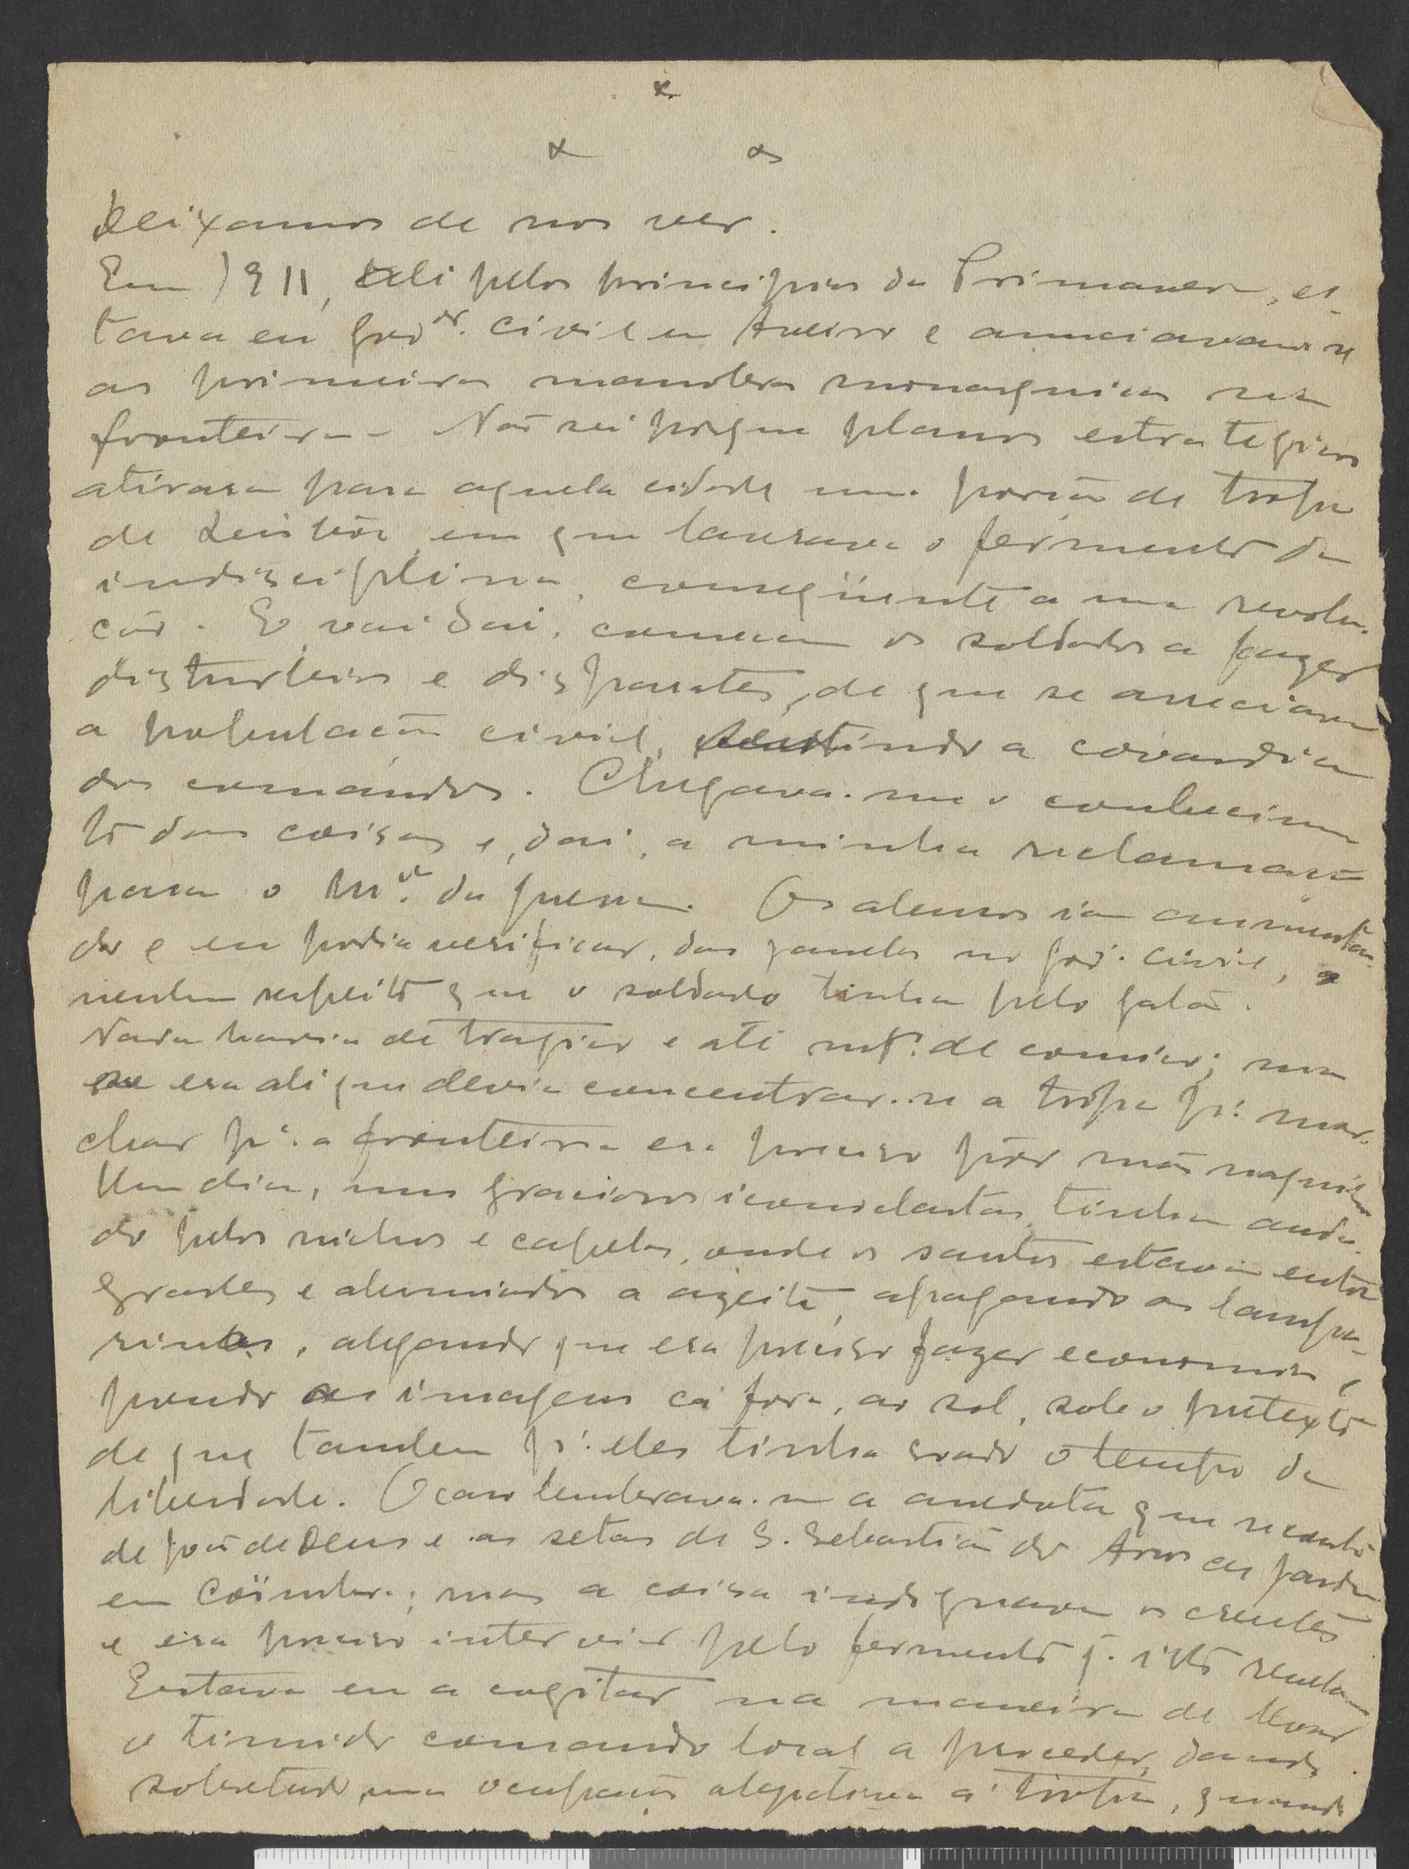 x
x x
Deixamos de nos ver.
Em 1911, ali pelos principios da Primavera, es-
tava eu gov.or civil em Aveiro e anunciavam-se
as primeiras manobras monarquicas na
fronteira. Não sei porque planos estrategicos
atiraram para aquela cidade uma porção de tropa
de Lisbôa em que lavrava o fermento da
indisciplina, conseqüente a uma revolu-
ção. E vai daí, começam os soldados a fazer
disturbios e disparates, de que se arreceiava
a população civil, sentindo a covardia
dos comandos. Chegava-me o conhecimen
to das coisas e, daí, a minha reclamação
para o M.º da guerra. Os alemos iam aumentan-
do e eu podia verificar, das janelas no gov. civil, o
nenhum respeito que o soldado tinha pelo galão.
Nada havia de tragico e até mt.º de comico; mas
se era ali que devia concentrar-se a tropa p.ª mar-
char p.ª a fronteira era preciso pôr mão naquilo
Um dia, uns graciosos iconoclastas tinham anda-
do pelos nichos e capelas, onde os santos estavam entre
grades e alumiados a azeite, apagando as lampa-
rinas, alegando que era preciso fazer economias, e
pondo as imagens cá fora, ao sol, sob o pretexto
de que tambem p.ª eles tinha soado o tempo da
liberdade. O caso lembrava-me a anedota que se conta
de João de Deus e as setas de S. Sebastião do Arco
em Coïmbra; mas a coisa indignava os crentes
e era preciso intervir pelo fermento q. isto revelava
Estava eu a cogitar na maneira de levar
o timido comando local a proceder, dando,
sobretudo, uma ocupação á tropa, quando